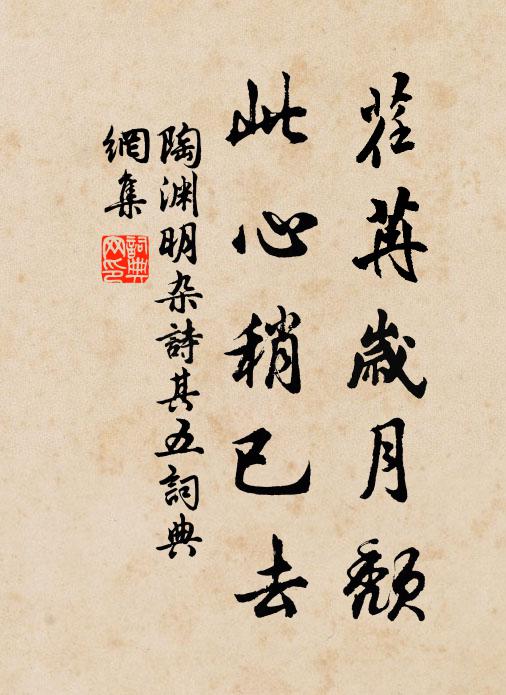 荏苒歲月頹
此心稍已去
陶渊明杂詩其五詞典
網集
詞典
网印